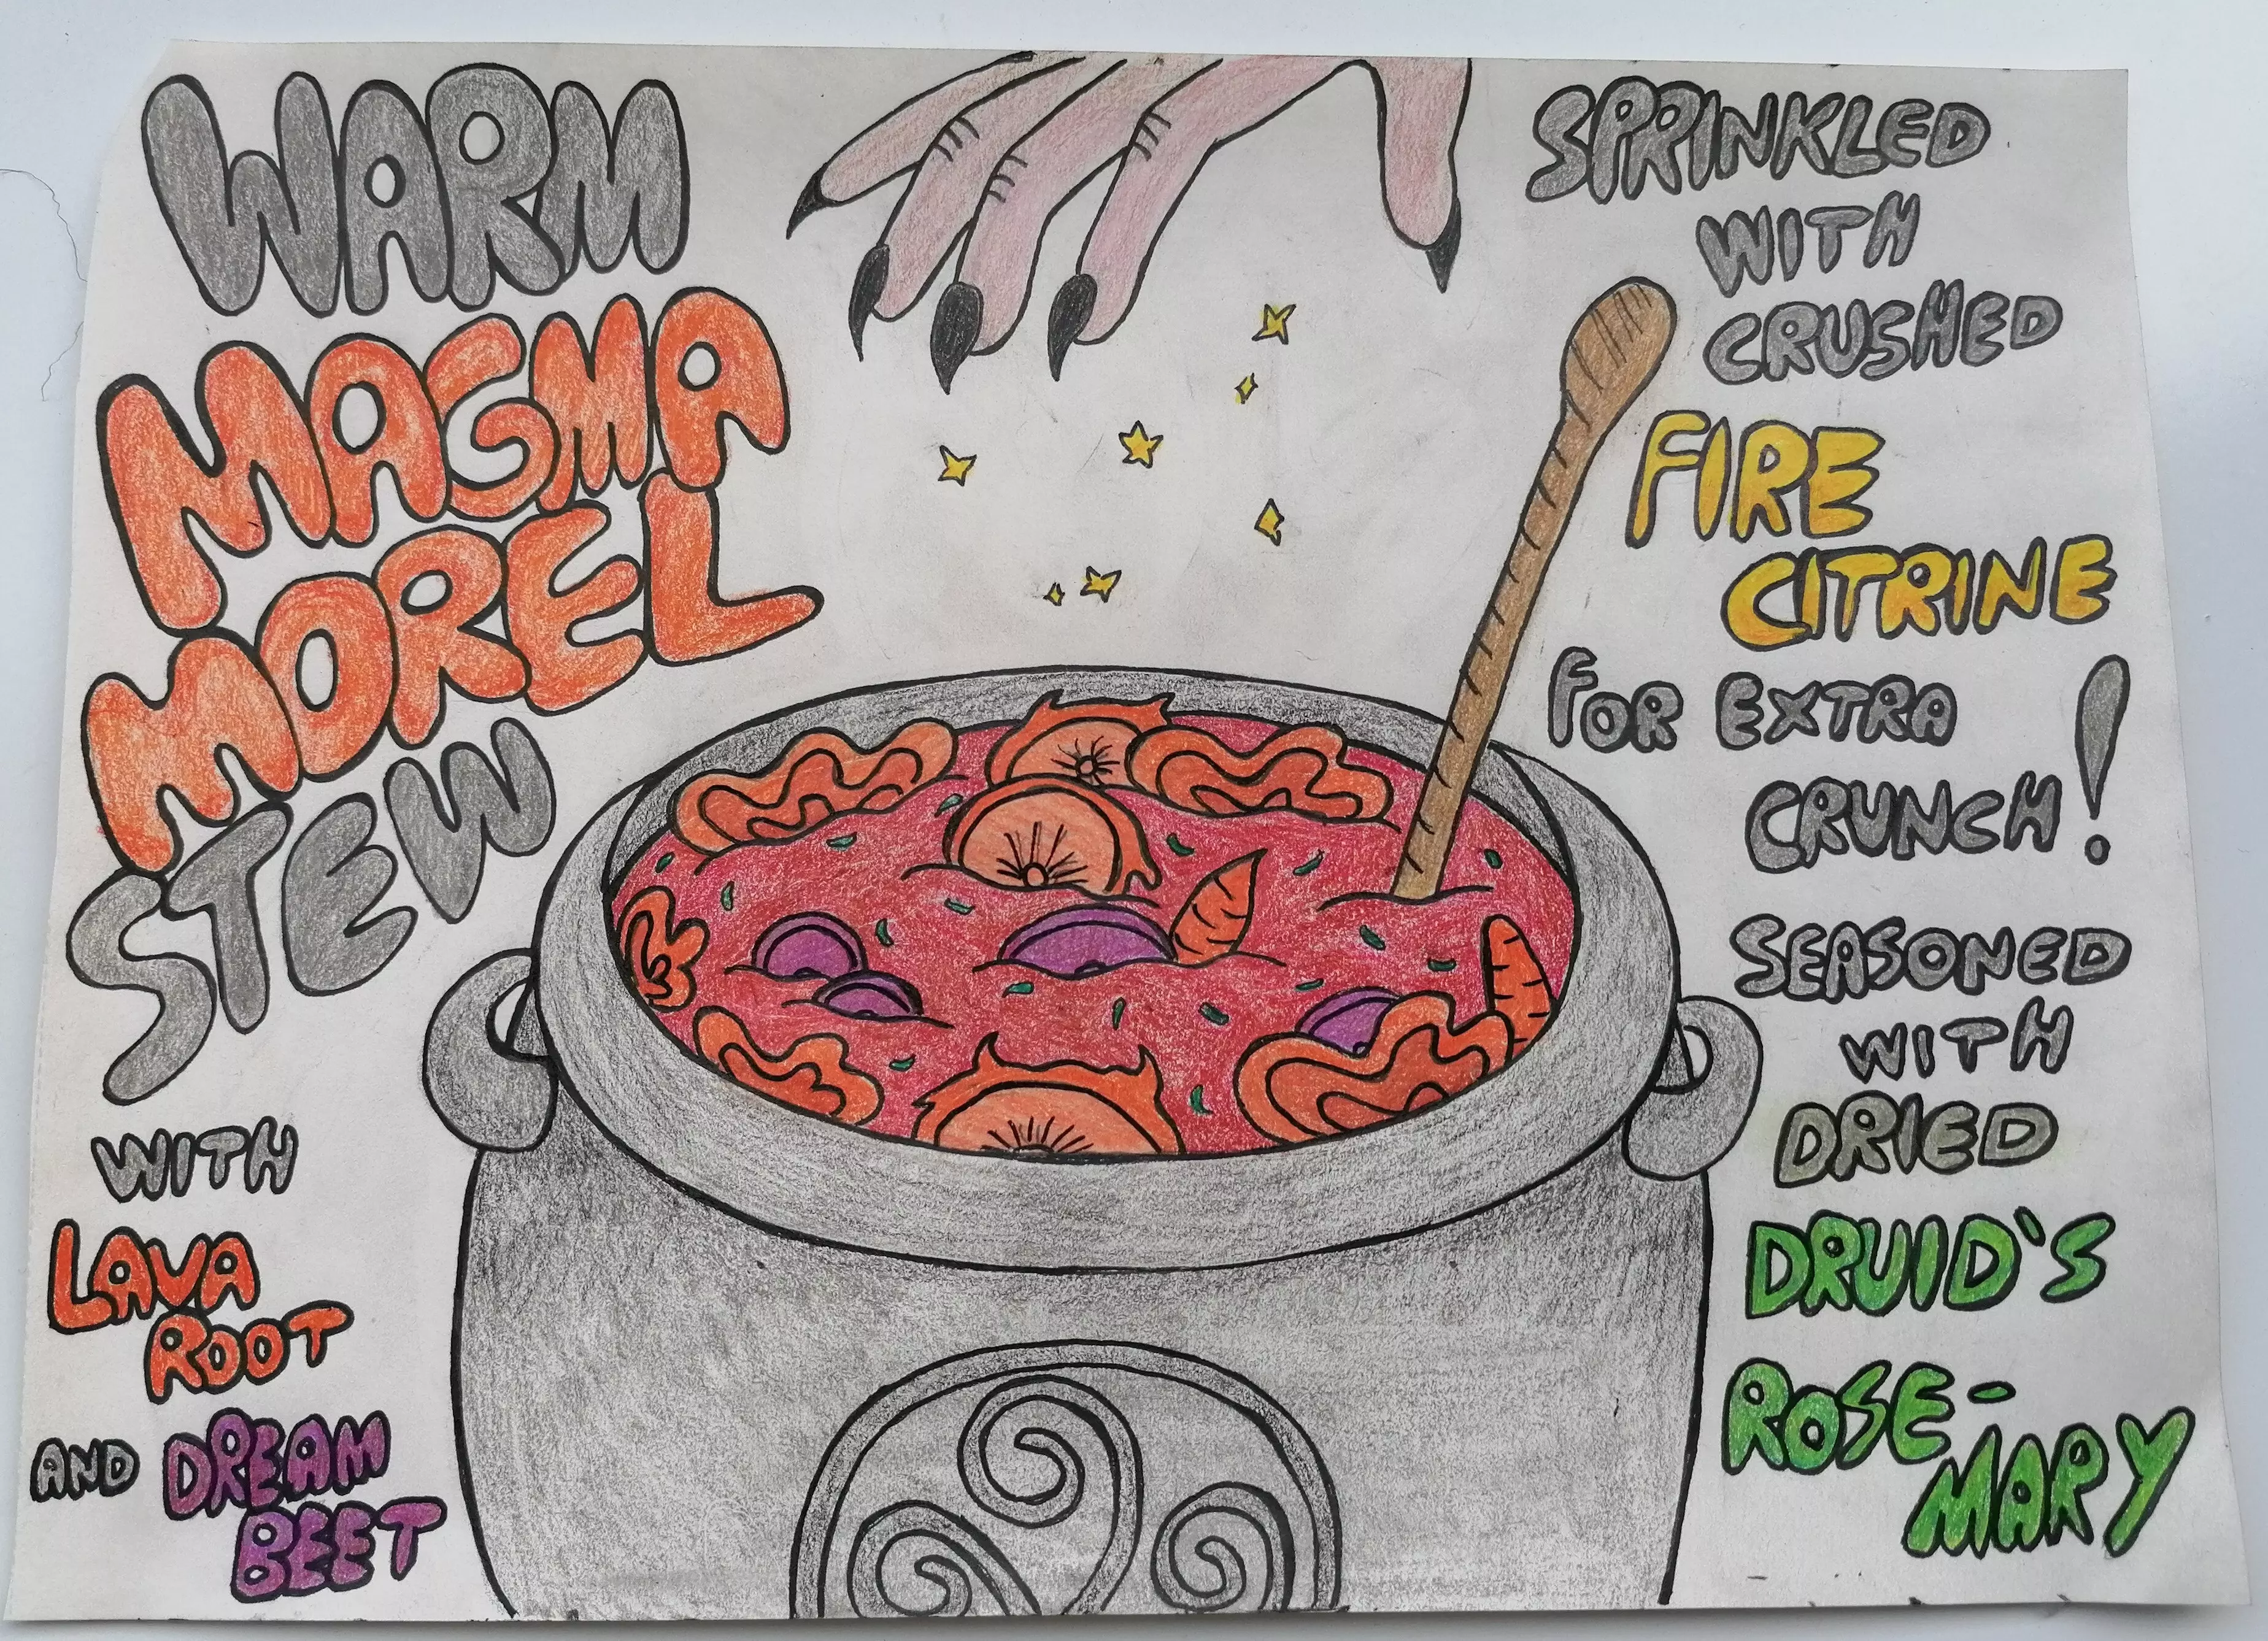 WARM
MAGMA
MOREL
STEW
WITH
LAVA
ROOT
AND DREAM
BEET
SPRINKLED
WITH
CRUSHED
FIRE
CITRINE
FOR EXTRA
CRUNCH!
SEASONED
WITH
DRIED
DRUID'S
ROSE-
MARY